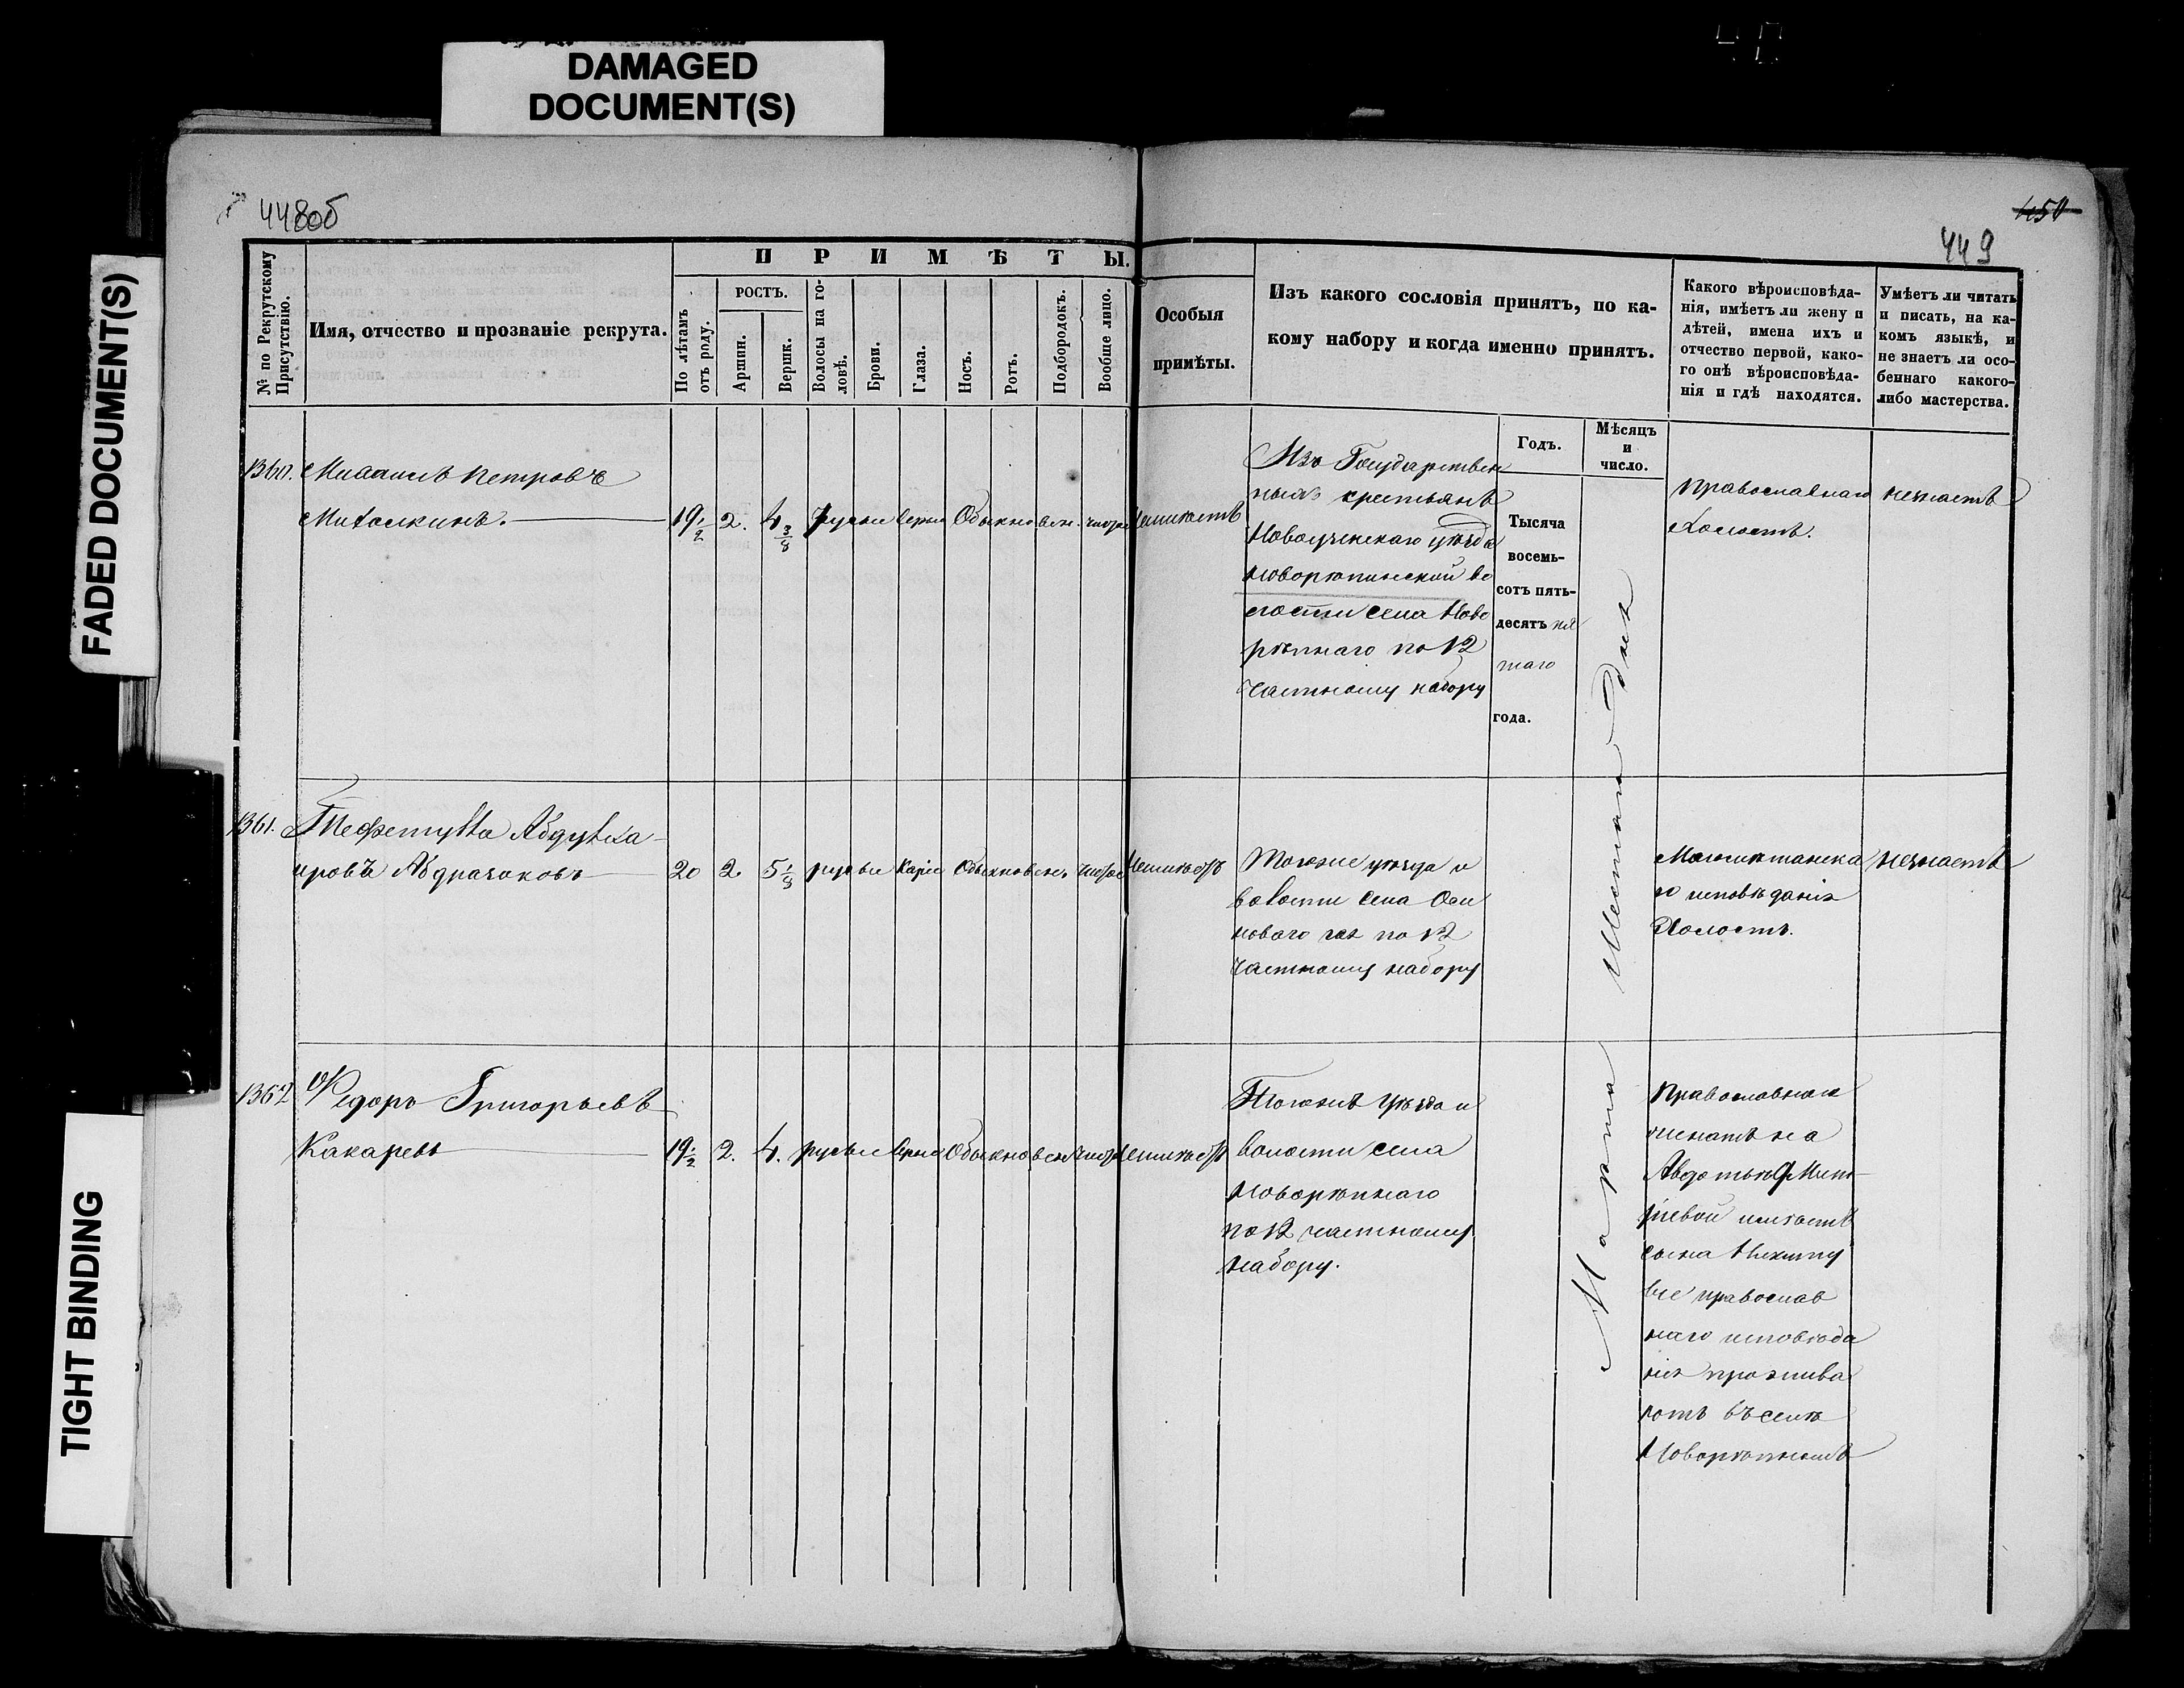 DAMAGED
DOCUMENT(S)
FADED DOCUMENT(S)
TIGHT BINDING
448об
450
449
№ по Рекрутскому
Присутствію.
Имя, отчество и прозваніе рекрута.
ПРИМѢТЫ.
По лѣтамъ
отъ роду.
РОСТЪ.
Аршин.
Вершк.
Волосы на го-
ловѣ.
Брови.
Глаза.
Носъ.
Ротъ.
Подбородокъ.
Вообще лицо.
Особыя
примѣты.
Изъ какого сословія принятъ, по ка-
кому набору и когда именно принятъ.
Какого вѣроисповѣда-
нія, имѣетъ ли жену и
дѣтей, имена ихъ и
отчество первой, како-
го онѣ вѣроисповѣда-
нія и гдѣ находятся.
Умѣетъ ли читать
и писать, на ка-
комъ языкѣ, и
не знаетъ ли осо-
беннаго какого-
либо мастерства.
Годъ.
Мѣсяцъ
и
число.
1360. Михаилъ Петровъ
Михалкинъ. 19 1/2 2. 4 3/8 русые серые Обыкновен. чистое Неимѣетъ
Изъ Государствен
ныхъ крестьянъ
Новоузенскаго уѣзда
Новорѣпинской во
лости села Ново
рѣпнаго по 12
частному набору
Тысяча
восемь-
сотъ пять-
десятъ пя
таго
года.
Марта Шестаго дня
Православнаго
Холостъ.
незнаетъ
1361.
20 2. 5 1/8 русые Каріе Обыкновенъ чистое Неимѣетъ
Тогоже уѣзда и
волости села Оси
новаго по 12
частному набору
Магометанска
го исповѣданія
Холостъ.
незнаетъ
1362 Федоръ Григорьевъ
Какаревъ 19 1/2 2. 4. русые серые Обыкновен чистое Неимѣетъ
Тогожъ Уѣзда и
волости села
Новорѣпнаго
по 12 частному
набору.
Православнаго
женатъ на
имѣетъ
сына Никиту
все православ
наго исповѣда
нія прожива
ютъ въ селѣ
Новорѣпномъ